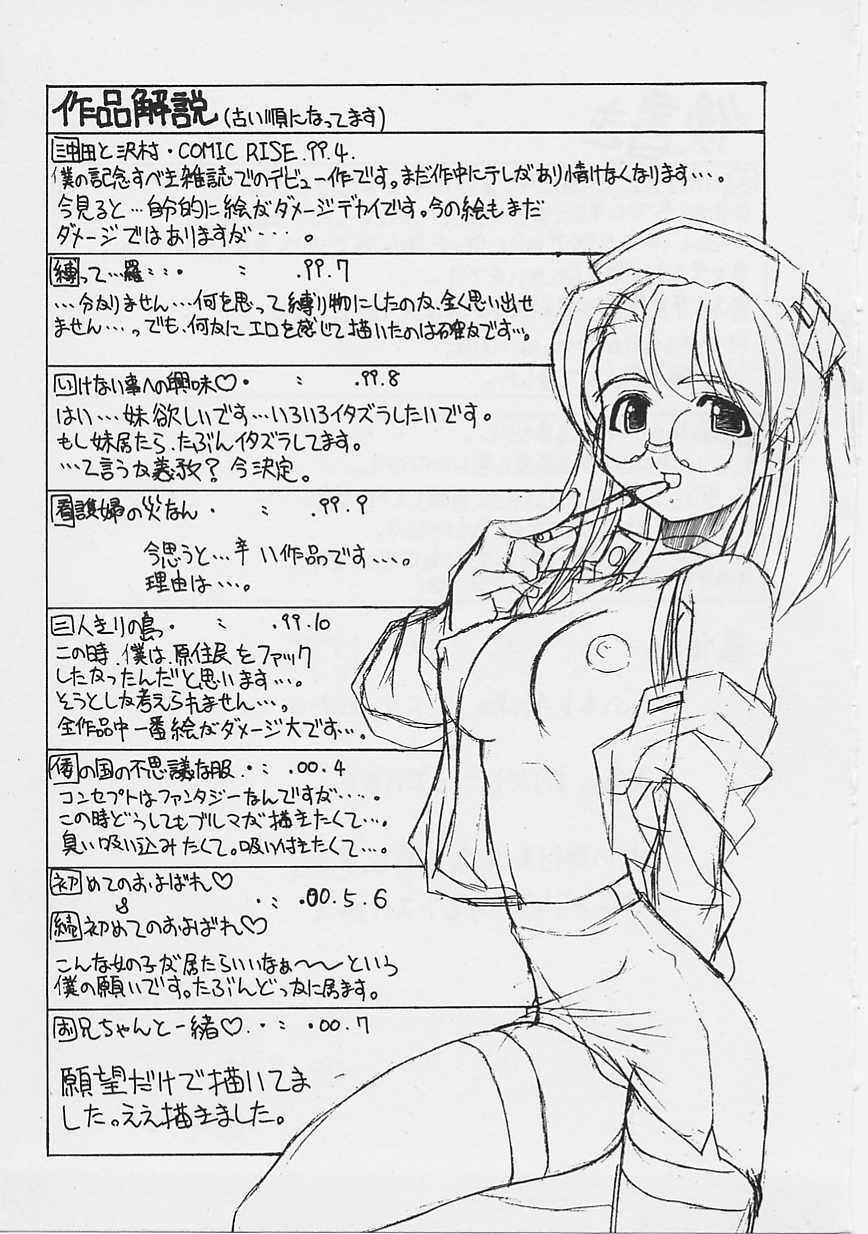 作品解説(古い順になってます)
沖田と沢村・COMIC RISE.99.4.
僕の記念すべき主雑誌でのデビュー作です。まだ作中にテレがあり情けなくなります…。
今見ると…自分的に絵がダメージデカイです。今の絵もまだ
ダメージではありますが…。
縛って…羅…・ : .99.7
…分かりません…何を思って縛り物にしたのか、全く思い出せ
ません…。っでも、何かにエロを感じて描いたのは確かです…。
いけない事への興味♡・ : .99.8
はい…妹欲しいです…いろいろイタズラしたいです。
もし妹居たら、たぶんイタズラしてます。
…て言うか義務?今決定。
看護婦の災なん・ : .99.9
今思うと…辛い作品です…。
理由は…。
三人きりの島っ・ : .99.10
この時、僕は、原住民をファック
したかったんだと思います…。
そうとしか考えられません…。
全作品中一番絵がダメージ大です…。
倭の国の不思議な服.・: .00.4
コンセプトはファンタジーなんですが…。
この時どうしてもブルマが描きたくて…。
臭い吸い込みたくて。吸い付きたくて…。
初めてのおよばれ♡
& .・: .00.5.6
続初めてのおよばれ♡
こんな女の子が居たらいいなぁ〜〜という
僕の願いです。たぶんどっかに居ます。
お兄ちゃんと一緒♡.・: .00.7
願望だけで描いてま
した。ええ描きました。